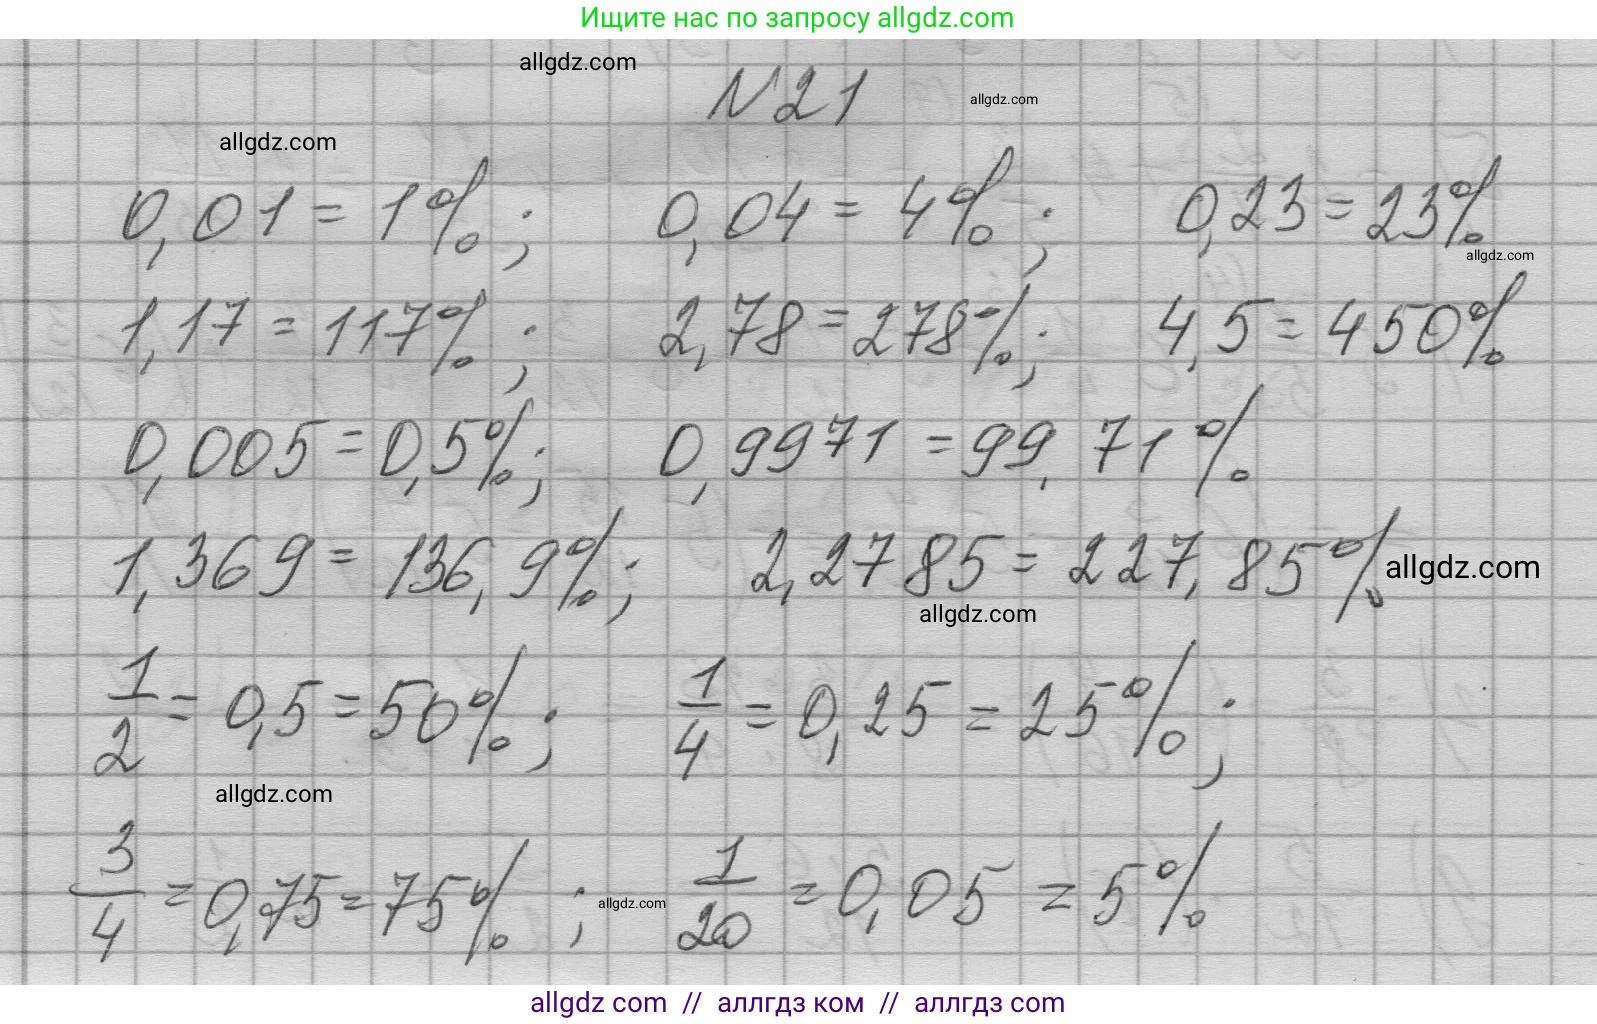 Ищите нас по запросу allgdz.com
allgdz.com
N 21
allgdz.com
allgdz.com
0,01 = 1% ; 0,04 = 4% ; 0,23 = 23%
allgdz.com
1,17 = 117% ; 2,78 = 278% ; 4,5 = 450%
0,005 = 0,5% ; 0,9971 = 99,71%
1,369 = 136,9% ; 2,2785 = 227,85%
allgdz.com
allgdz.com
1/2 = 0,5 = 50% ; 1/4 = 0,25 = 25% ;
allgdz.com
3/4 = 0,75 = 75% ; 1/20 = 0,05 = 5%
allgdz.com
allgdz com // аллгдз ком // аллгдз com